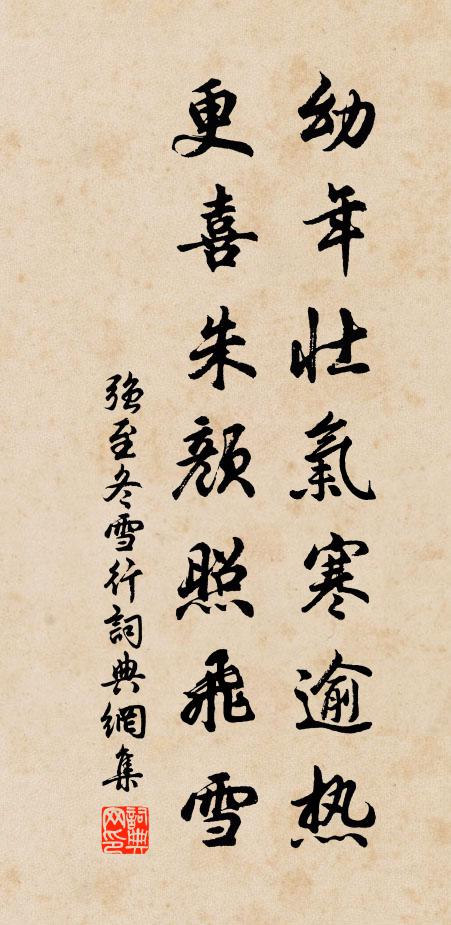 幼年壮氣寒逾热
更喜朱顔照飛雪
强至冬雪行詞典網集
詞典网印